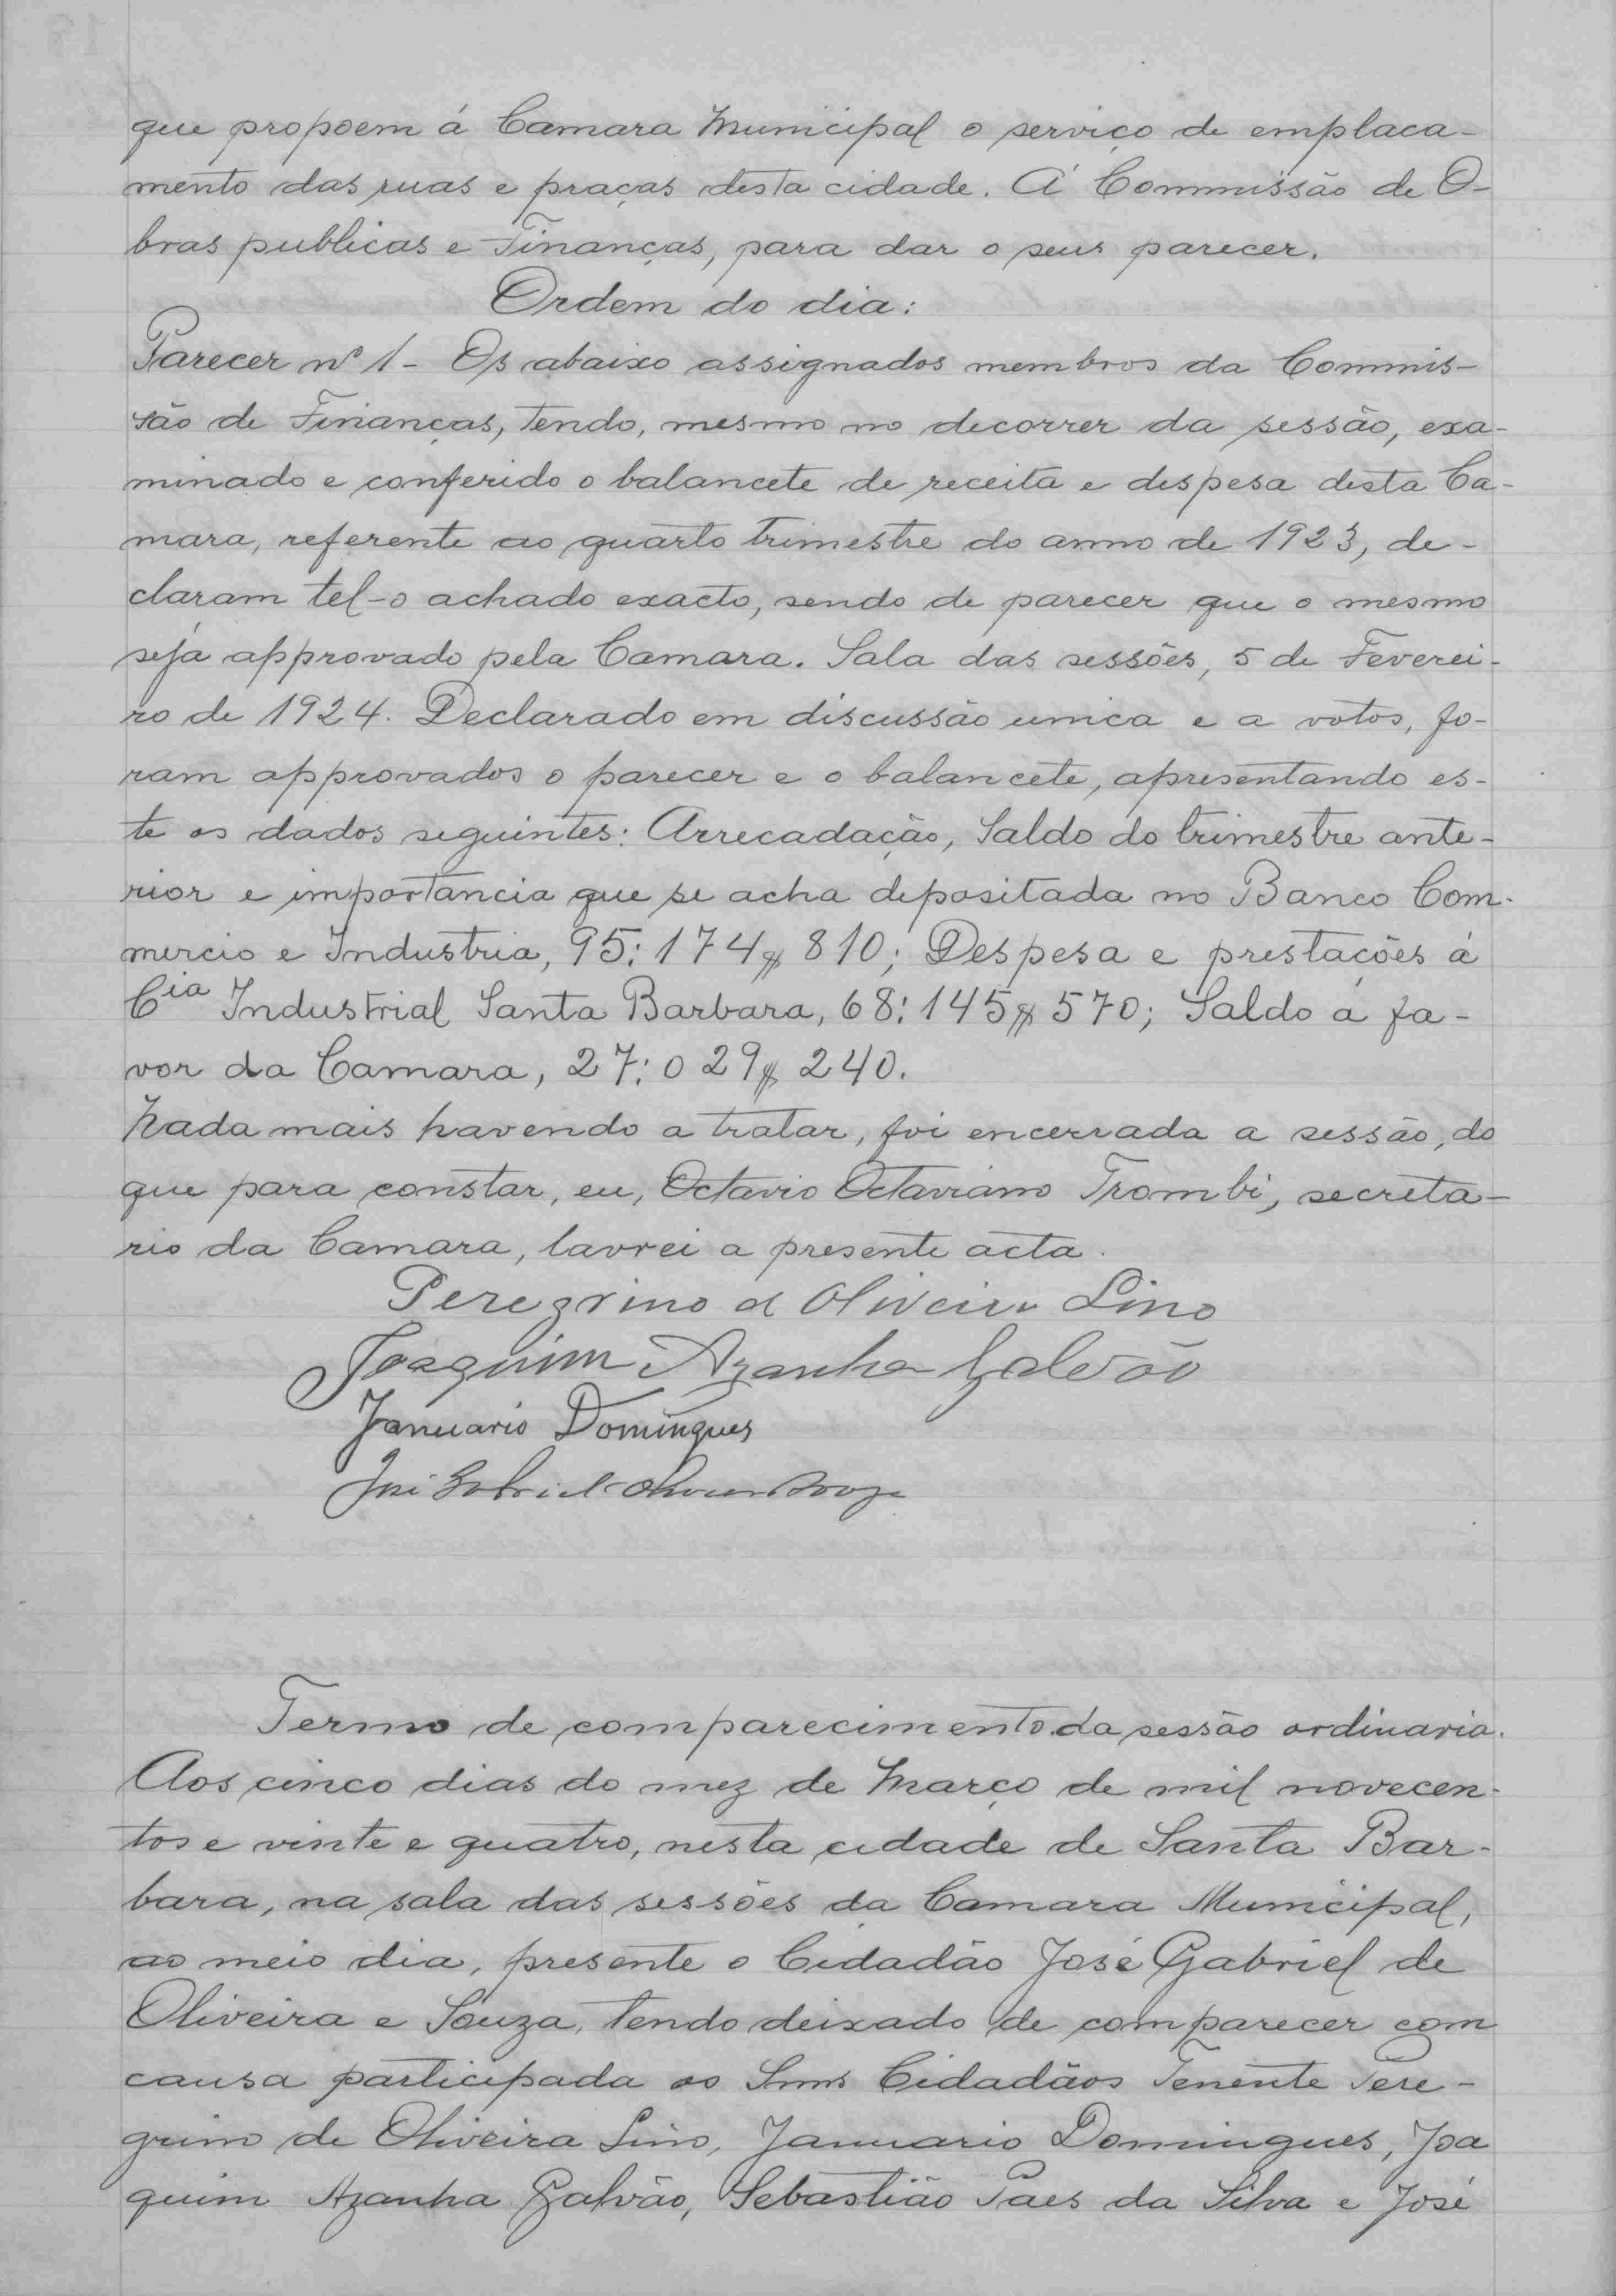 que propoem á Camara Municipal o serviço de emplaca-
mento das ruas e praças desta cidade. A' Commissão de O-
bras publicas e Finanças, para dar o seus parecer.
Ordem do dia:
Parecer nº 1 - Os abaixo assignados membros da Commis-
são de Finanças, tendo, mesmo no decorrer da sessão, exa-
minado e conferido o balancete de receita e despesa desta Ca-
mara, referente ao quarto trimestre do anno de 1923, de-
claram tel-o achado exacto, sendo de parecer que o mesmo
seja approvado pela Camara. Sala das sessões, 5 de Feverei-
ro de 1924. Declarado em discussão unica e a votos, fo-
ram approvados o parecer e o balancete, apresentando es-
te os dados seguintes: Arrecadação, Saldo do trimestre ante-
rior e importancia que se acha depositada no Banco Com-
mercio e Industria, 95:174$810; Despesa e prestações á
Cia Industrial Santa Barbara, 68:145$570; Saldo a fa-
vor da Camara, 27:029$240.
Nada mais havendo a tratar, foi encerrada a sessão, do
que para constar, eu, Octavio Octaviano Trombi, secreta-
rio da Camara, lavrei a presente acta.
Peregrino d Oliveira Lino
Joaquim Azanha Galvão
Januario Domingues
José Gabriel Oliveira Souza
Termo de comparecimento da sessão ordinaria.
Aos cinco dias do mez de Março de mil novecen-
tos e vinte e quatro, nesta cidade de Santa Bar-
bara, na sala das sessões da Camara Municipal,
ao meio dia, presente o Cidadão José Gabriel de
Oliveira e Souza, tendo deixado de comparecer com
causa participada os Snrs Cidadãos Tenente Pere-
grino de Oliveira Lino, Januario Domingues, Joa
quim Azanha Galvão, Sebastião Paes da Silva e José